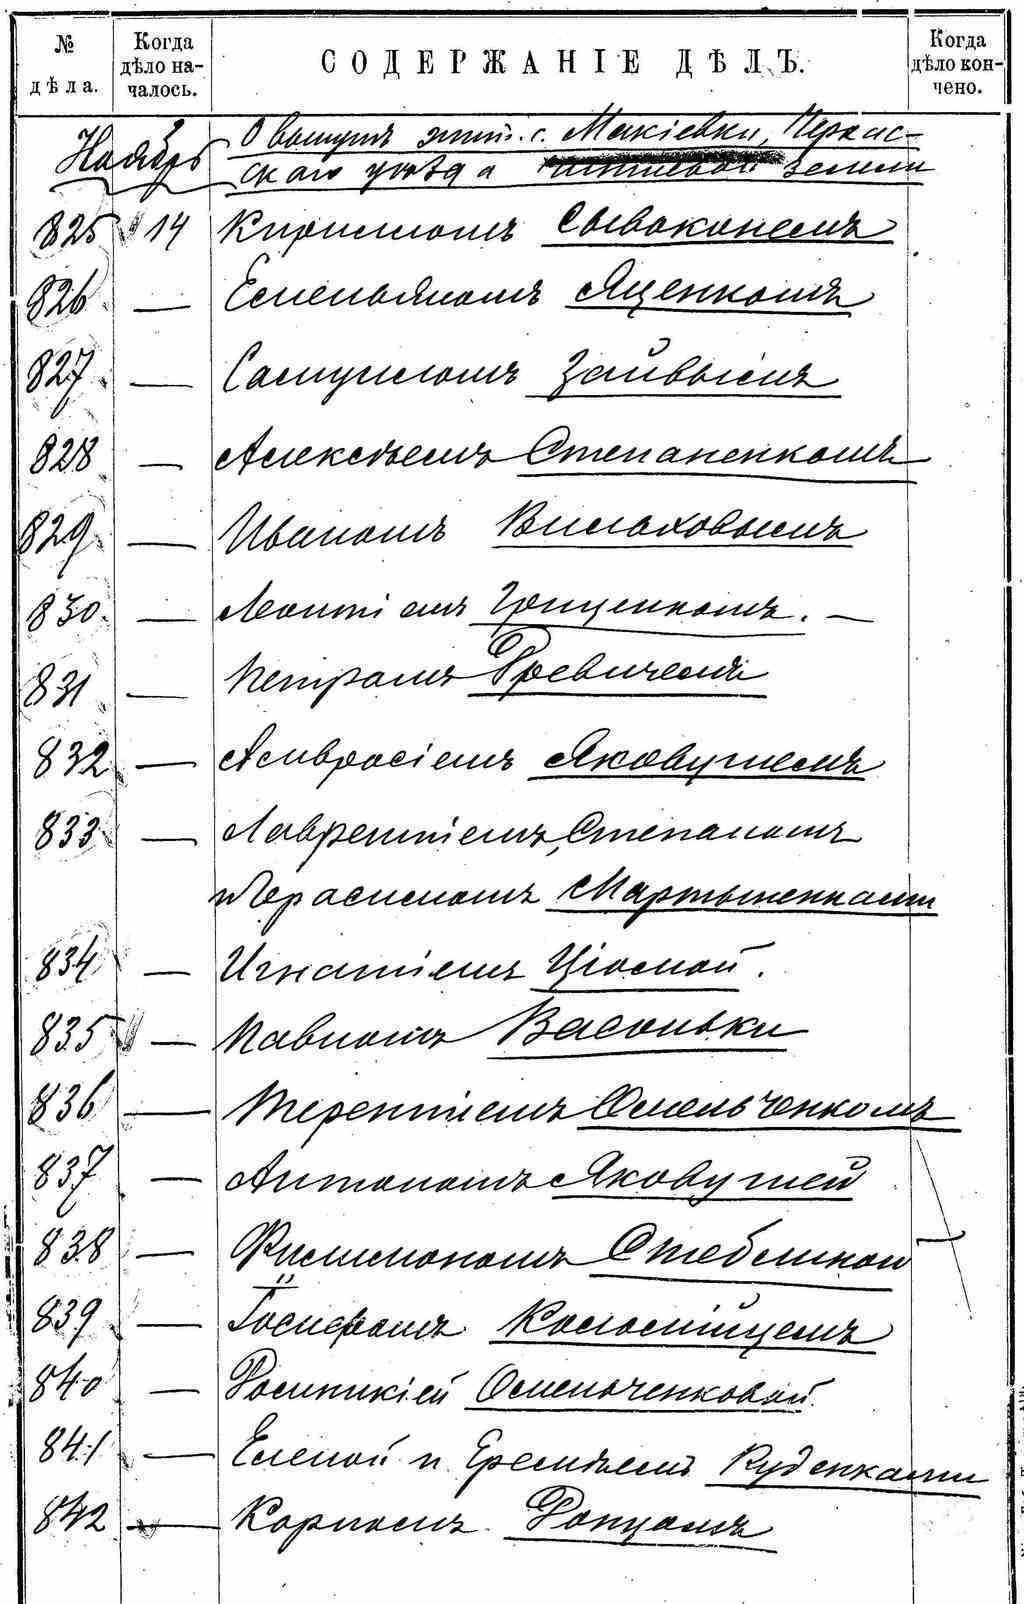 № дѣла.
Когда дѣло началось.
СОДЕРЖАНІЕ ДѢЛЪ.
Когда дѣло кончено.
Ноябрь О выкупѣ жит. с. Макіевки, Черкас-
скаго уѣзда земли
825 14 Кириломъ Сывоконемъ
826 — Емельяномъ Яценкомъ
827 — Самуиломъ Зайвымъ
828 — Алексѣемъ Степаненкомъ
829 — Иваномъ Вильховымъ
830 — Леонтіемъ Грищенкомъ. —
831 — Петромъ Гревичемъ
832 — Амвросіемъ Яковушемъ
833 — Лаврентіемъ, Степаномъ
и Герасимомъ Мартыненками
834 — Игнатіемъ Цюмой.
835 — Павломъ Васоньки
836 — Терентіемъ Омельченкомъ
837 — Антономъ Яковушей
838 — Филимономъ Стеблиной
839 — Іосифомъ Коломійцемъ
840 — Домникіей Омельченковой.
841 — Еленой и Еремѣемъ Руденками
842 — Карпомъ Гонцомъ